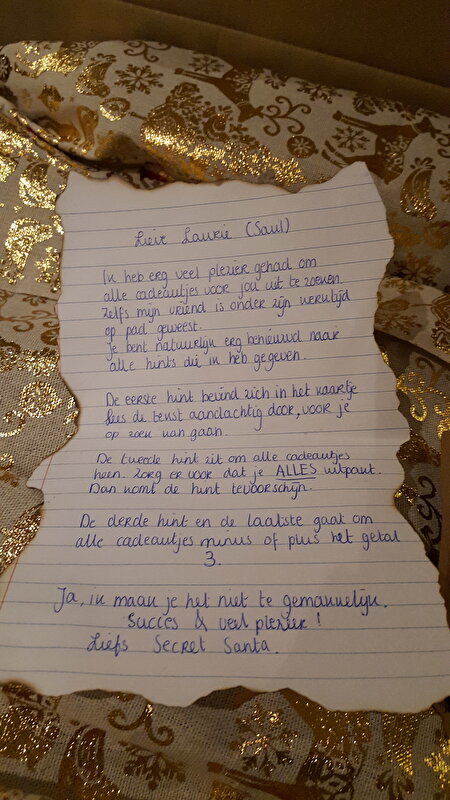 Lieve Laurie (Saul)
Ik heb erg veel plezier gehad om
alle cadeautjes voor jou uit te zoeken.
Zelfs mijn vriend is onder zijn werktijd
op pad geweest.
Je bent natuurlijk erg benieuwd naar
alle hints die ik heb gegeven.
De eerste hint bevind zich in het kaartje
lees de tekst aandachtig door, voor je
op zoek kan gaan.
De tweede hint zit om alle cadeautjes
heen. Zorg er voor dat je ALLES uitpakt.
Dan komt de hint tevoorschijn.
De derde hint en de laatste gaat om
alle cadeautjes minus of plus het getal
3.
Ja, ik maak je het niet te gemakkelijk.
Succes & veel plezier!
Liefs Secret Santa.